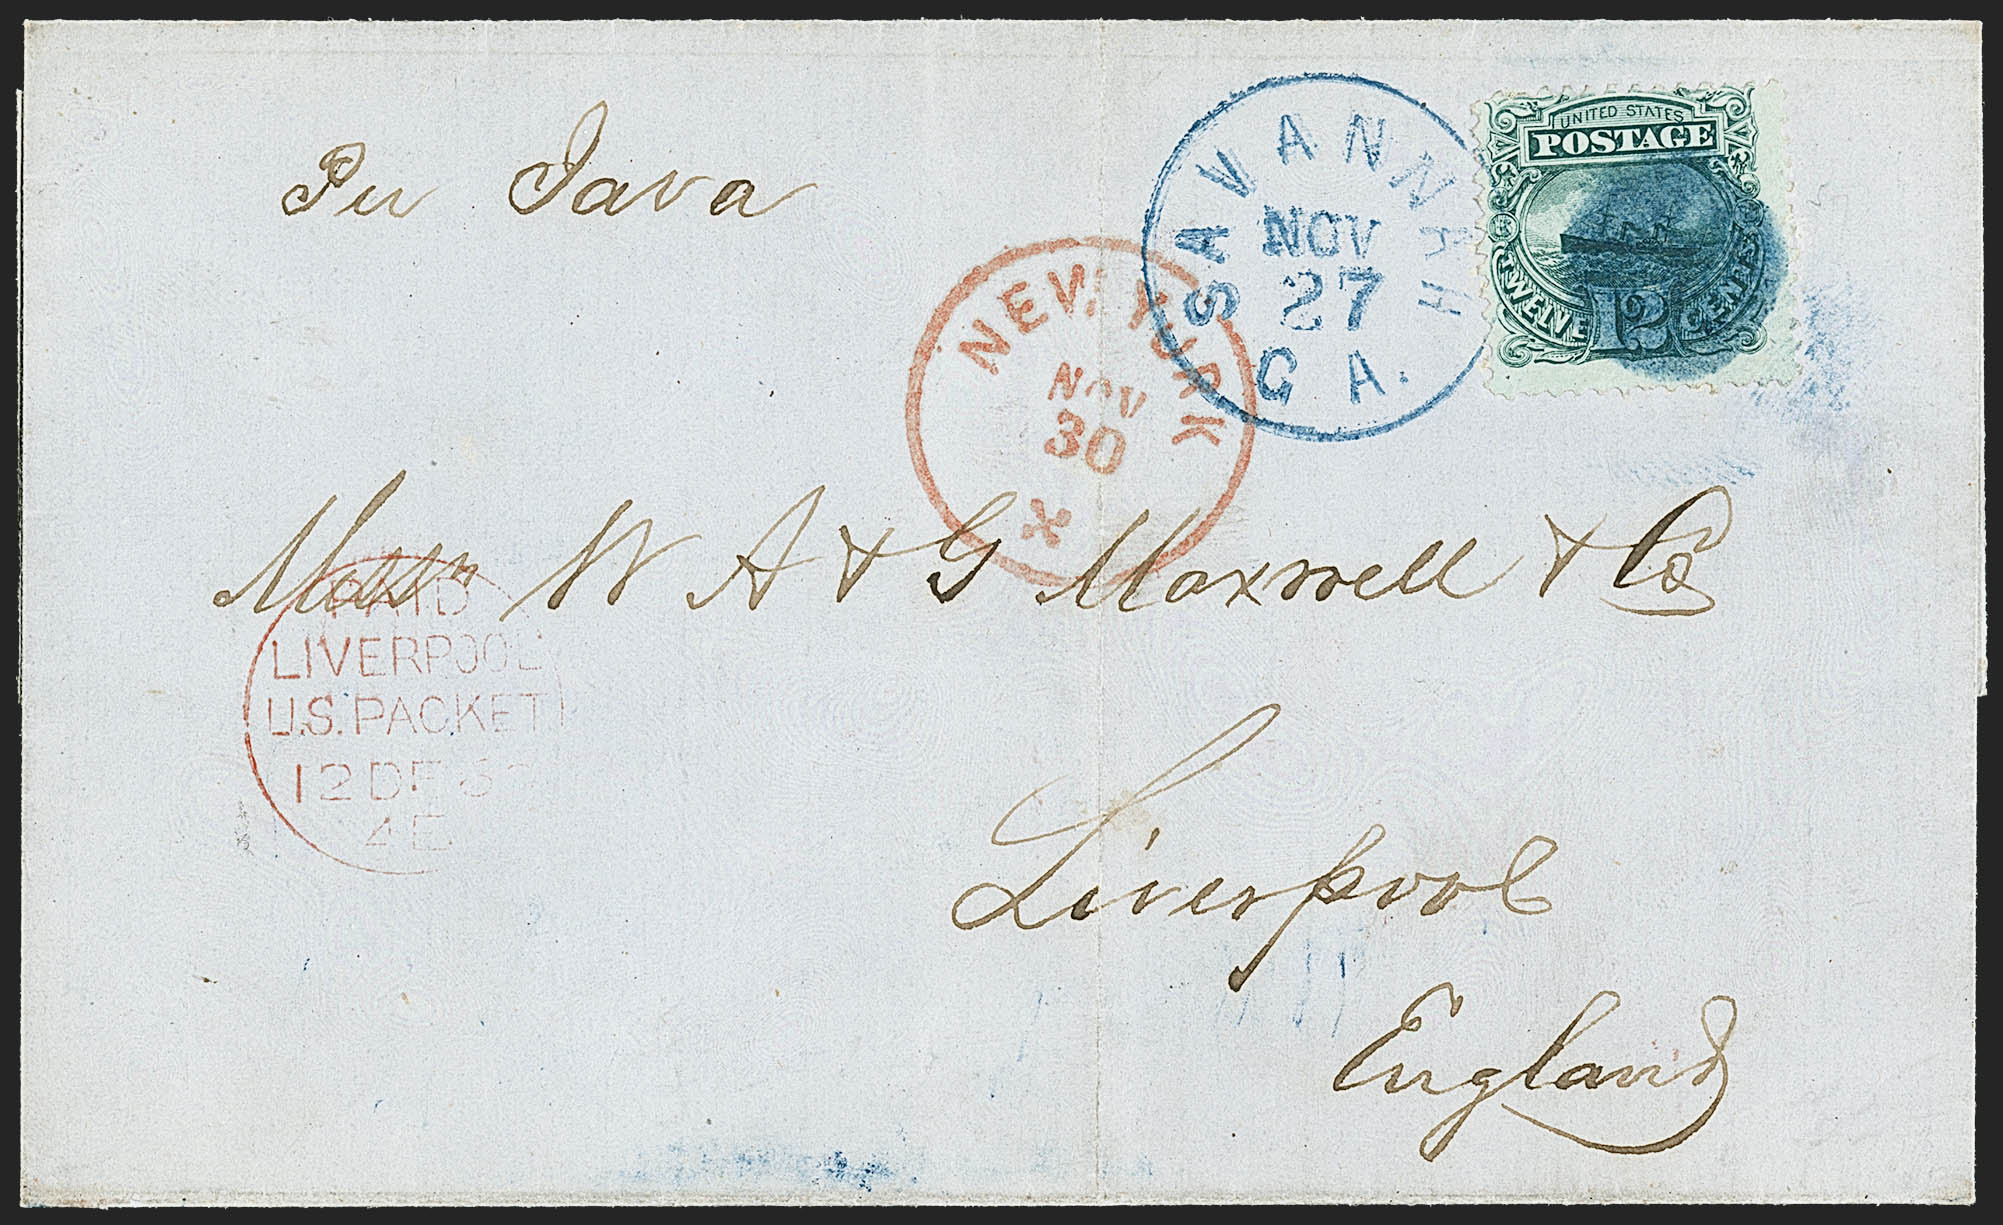 Per Java
SAVANNAH
NOV
27
GA.
UNITED STATES
POSTAGE
TWELVE 12 CENTS
NEW YORK
NOV
30
Messrs W A & G Maxwell & Co
PAID
LIVERPOOL
U.S. PACKET
12 DE 69
4E
Liverpool
England